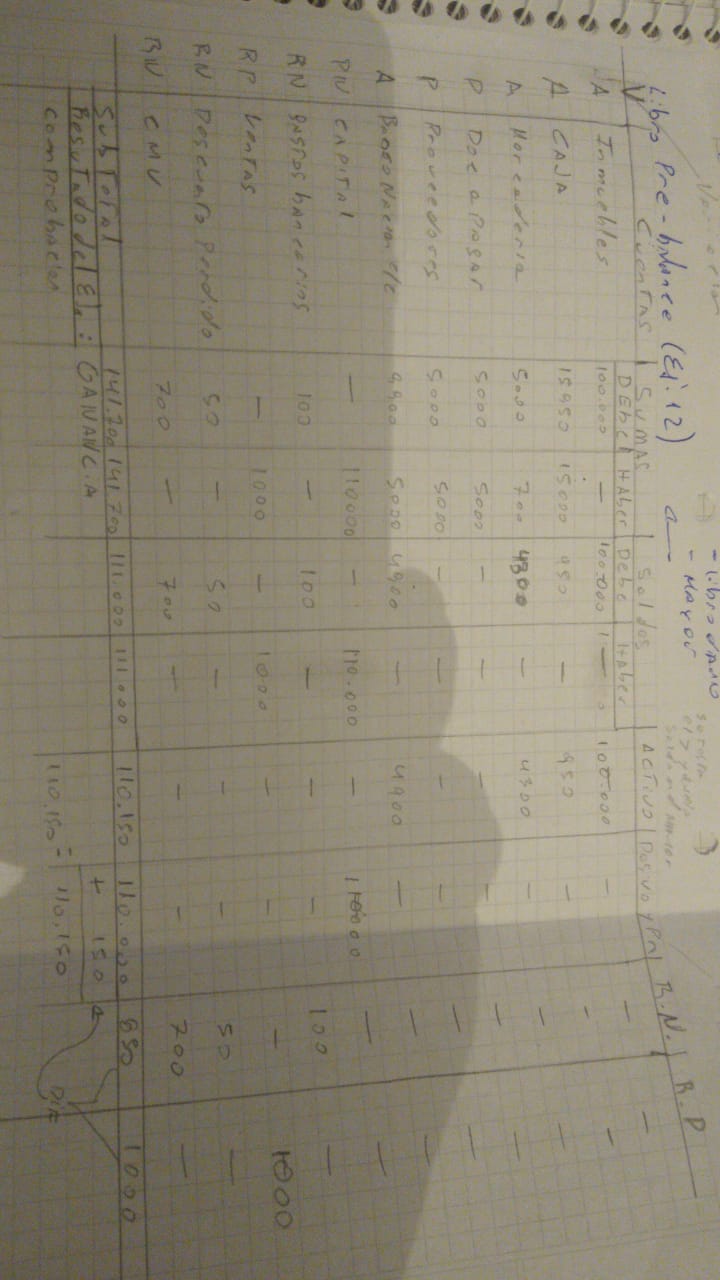 - Libro diario
- MAYOR
Libro Pre-balance (Ej: 12)
V Cuentas SUMAS Saldos ACTIVO Pasivo y Pn R.N. R.P
DEbe HAber Debe HAber
A Inmuebles 100.000 — 100.000 — 100.000 — — —
A CAJA 15950 15000 950 — 950 — — —
A Mercaderia 5000 700 4300 — 4300 — — —
P Doc a PAGAR 5000 5000 — — — — — —
P Proveedores 5000 5000 — — — — — —
A Banco Nacion c/c 9900 5000 4900 — 4900 — — —
PN CAPITAL — 110000 — 110.000 — 110000 — —
RN gastos bancarios 100 — 100 — — — 100 —
RP Ventas — 1000 — 1000 — — — 1000
RN Descuento Perdido 50 — 50 — — — 50 —
RN CMV 700 — 700 — — — 700 —
SubTotal 141.700 141.700 111.000 111.000 110.150 110.000 850 1000
Resultado del Ej.: GANANCIA + 150
comprobacion 110.150 = 110.150 Dif